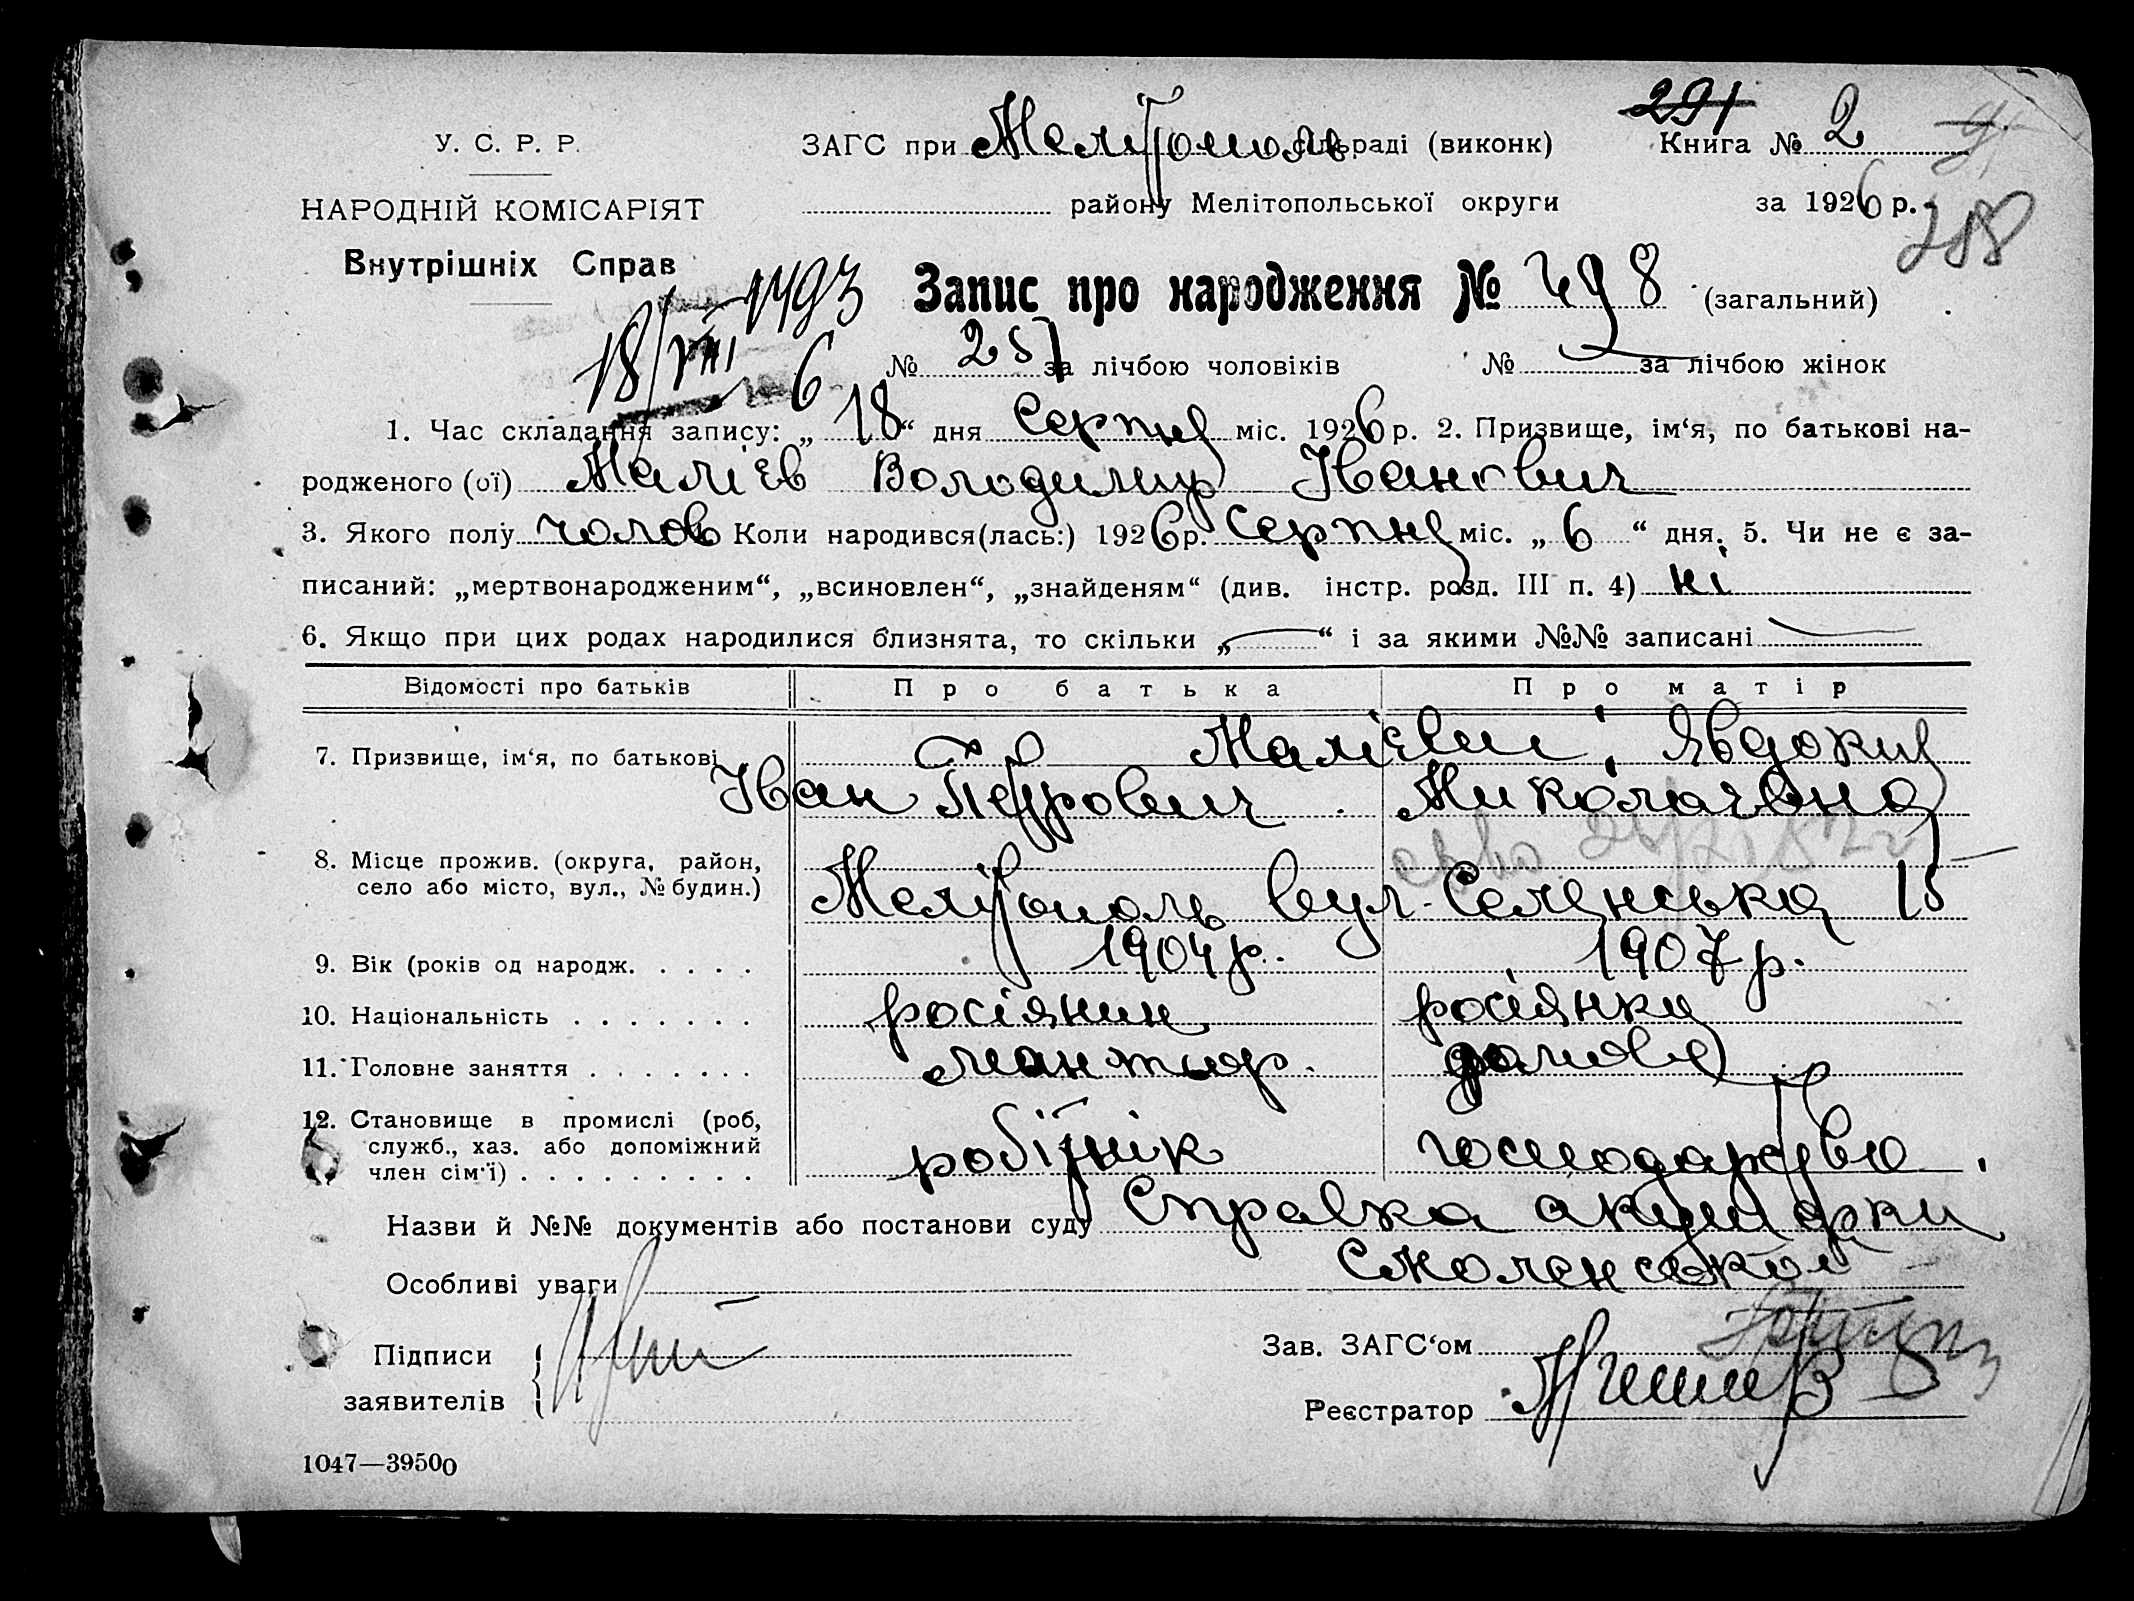 291
У. С. Р. Р. ЗАГС при Мелітополь сільраді (виконк) Книга № 2
НАРОДНІЙ КОМІСАРІЯТ району Мелітопольської округи за 1926 р.
288
Внутрішніх Справ
1493 Запис про народження № 498 (загальний)
18/VIII 6 № 257 за лічбою чоловіків № за лічбою жінок
1. Час складання запису: „18“ дня Серпня міс. 1926 р. 2. Призвище, ім‘я, по батькові на-
родженого (ої) Малієв Володимир Іванович
3. Якого полу чолов Коли народився(лась:) 1926 р. Серпня міс. „6“ дня. 5. Чи не є за-
писаний: „мертвонародженим“, „всиновлен“, „знайденям“ (див. інстр. розд. III п. 4) ні
6. Якщо при цих родах народилися близнята, то скільки „ “ і за якими №№ записані
Відомості про батьків Про батька Про матір
7. Призвище, ім‘я, по батькові Малієви Явдокия
Іван Петрович Миколаєвна
8. Місце прожив. (округа, район,
село або місто, вул., № будин.) Мелітополь вул. 15
9. Вік (років од народж. . . . . 1904 р. 1907 р.
10. Національність . . . . . . . росіянин росіянка
11. Головне заняття . . . . . . . монтьор. домове
12. Становище в промислі (роб,
служб., хаз. або допоміжний
член сім‘ї) . . . . . . . . . робітник господарство
Назви й №№ документів або постанови суду Справка акушорки
Смоленської
Особливі уваги
Підписи
заявителів
Зав. ЗАГС‘ом
Реєстратор
1047—39500